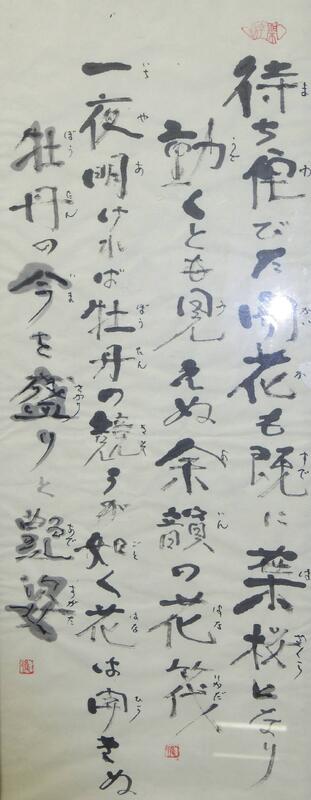 待ち侘びた開花も既に葉桜となり
動くとも見えぬ余韻の花筏
一夜明ければ牡丹の競うが如く花は開きぬ
牡丹の今を盛りと艶姿